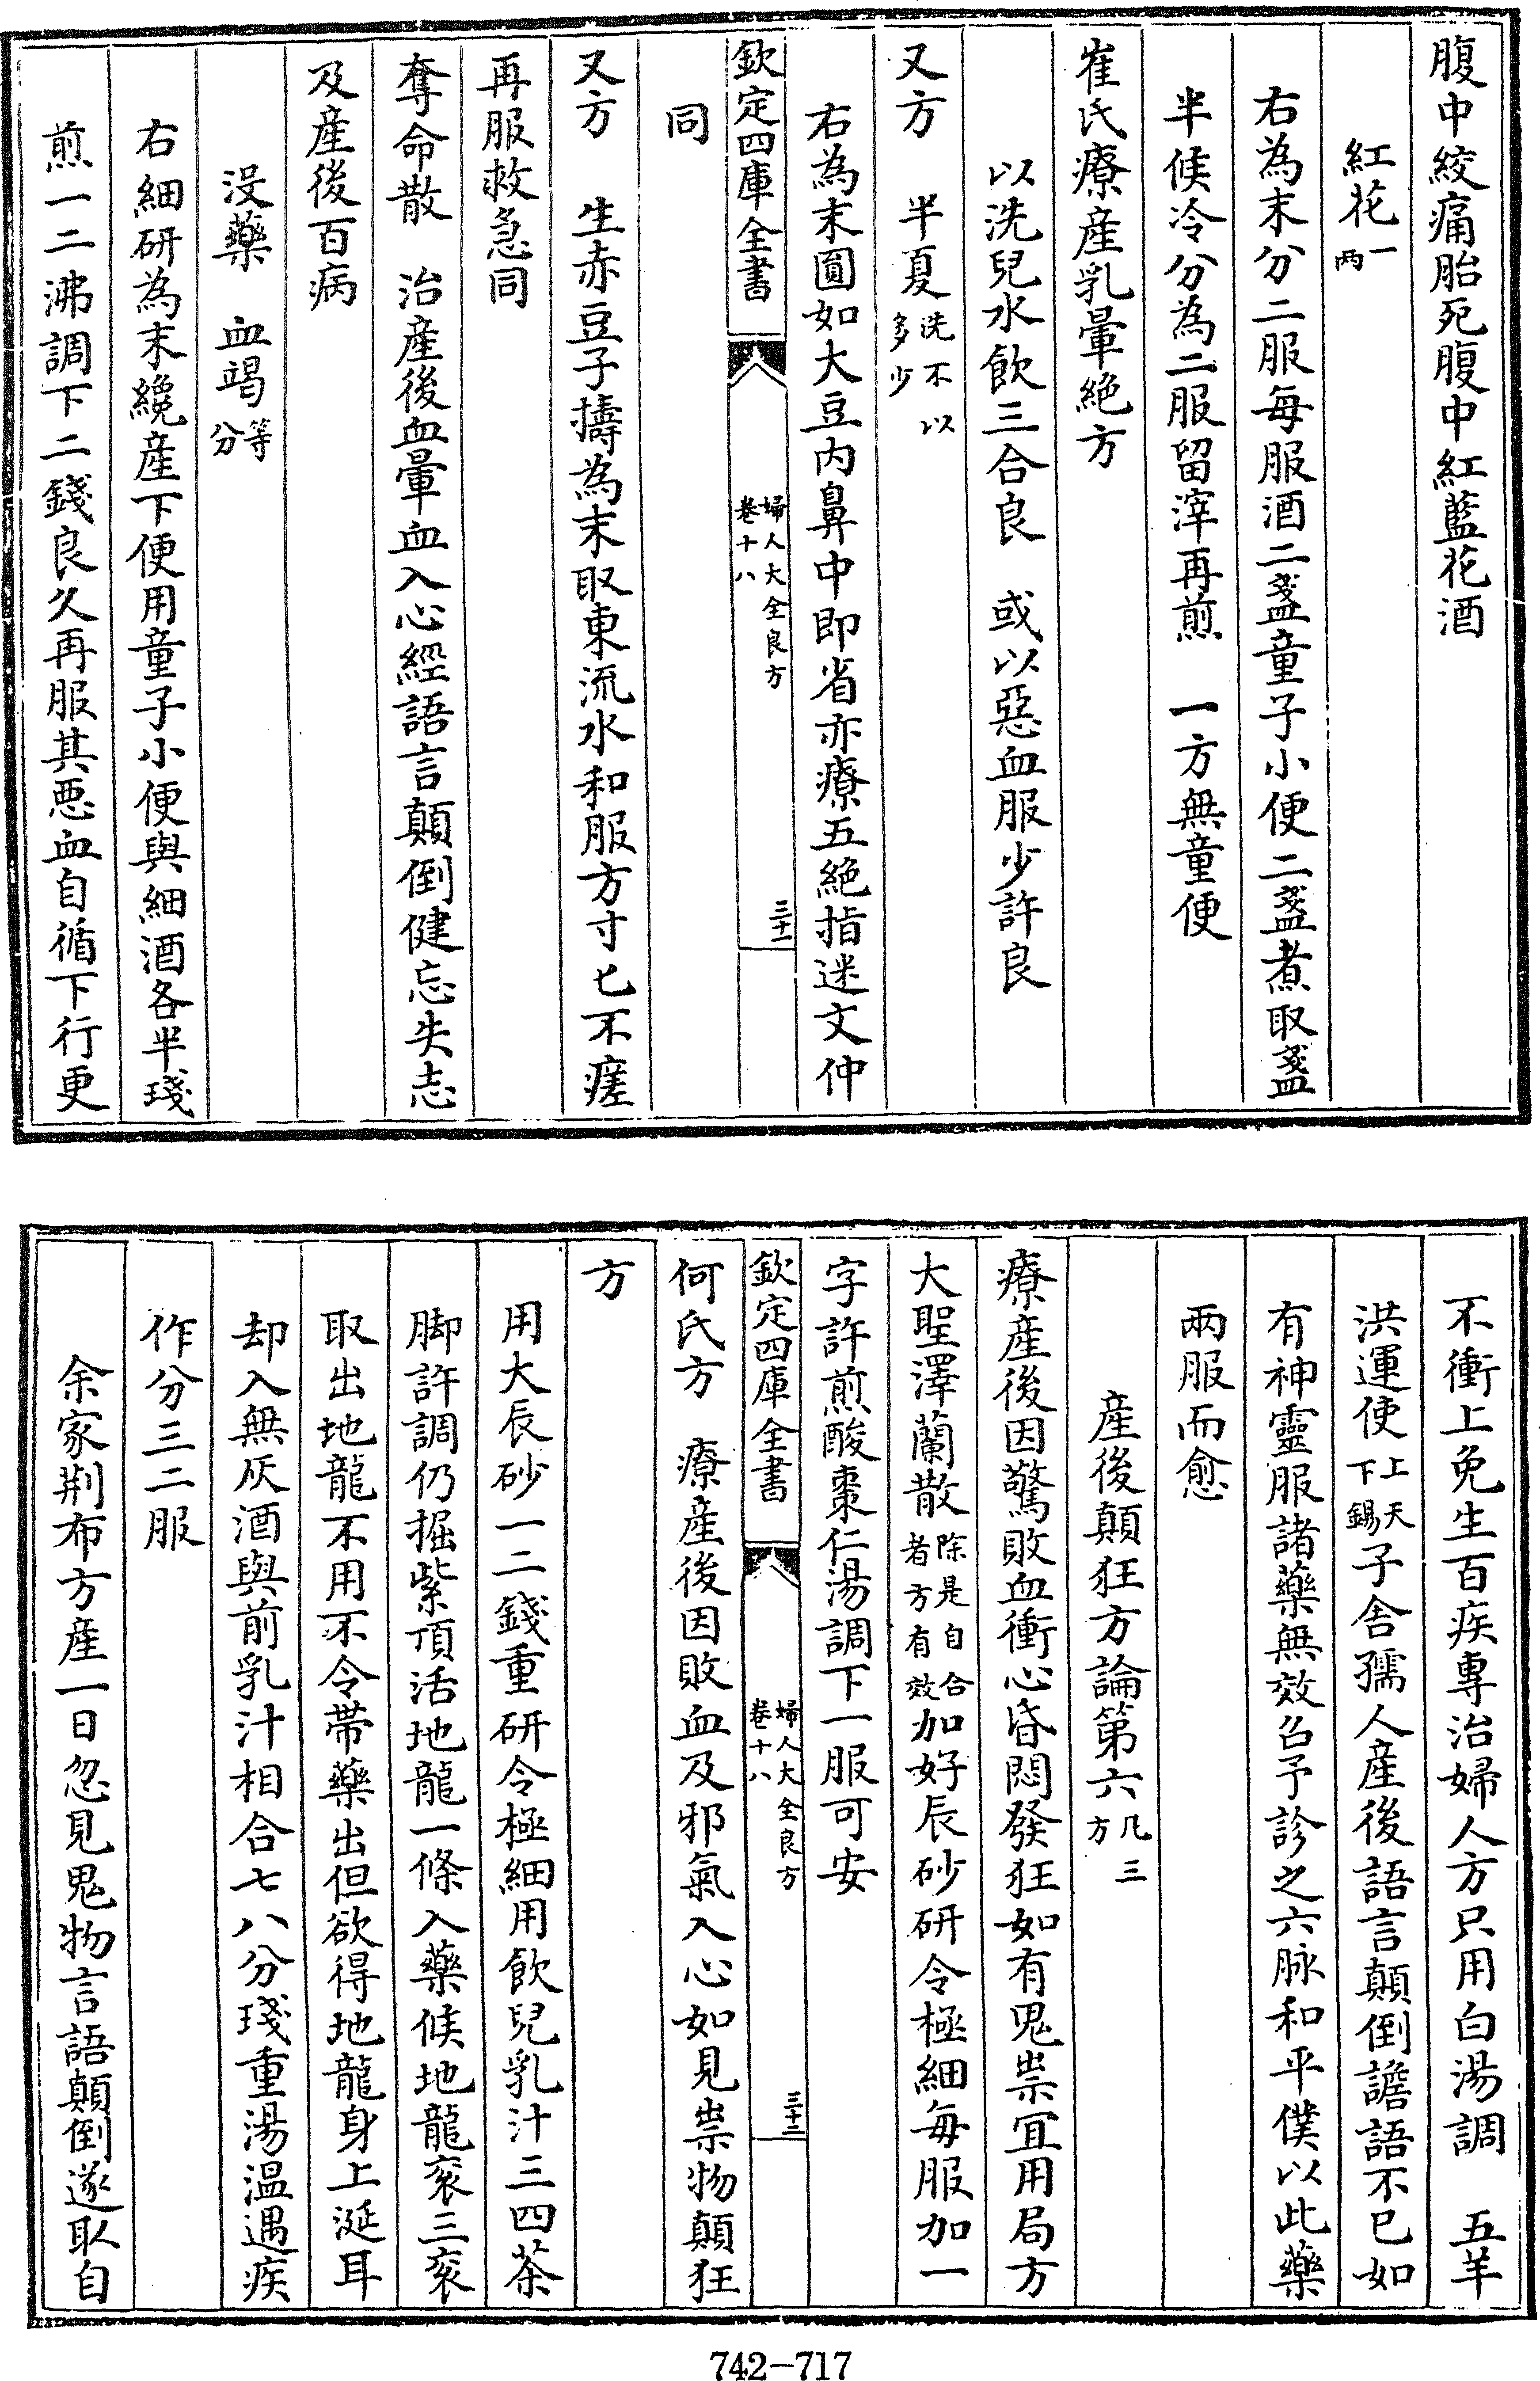 腹中絞痛胎死腹中紅藍花酒
紅花一兩
右為末分二服每服酒二盞童子小便二盞煮取盞
半候冷分為二服留滓再煎　一方無童便
崔氏療産乳暈絶方
以洗兒水飲三合良　或以惡血服少許良
又方　半夏洗不以多少
右為末圓如大豆内鼻中即省亦療五絶指迷文仲
欽定四庫全書　婦人大全良方卷十八　三十一
同
又方　生赤豆子擣為末取東流水和服方寸匕不瘥
再服救急同
奪命散　治産後血暈血入心經語言顛倒健忘失志
及産後百病
没藥　血竭等分
右細研為末纔産下便用童子小便與細酒各半琖
煎一二沸調下二錢良久再服其惡血自循下行更
不衝上免生百疾專治婦人方只用白湯調　五羊
洪運使上天下錫子舍孺人産後語言顛倒譫語不已如
有神靈服諸藥無效召予診之六脉和平僕以此藥
兩服而愈
産後顛狂方論第六凡三方
療産後因驚敗血衝心昏悶發狂如有鬼祟宜用局方
大聖澤蘭散除是自合者方有效加好辰砂研令極細每服加一
字許煎酸棗仁湯調下一服可安
欽定四庫全書　婦人大全良方卷十八　三十二
何氏方　療産後因敗血及邪氣入心如見祟物顛狂
方
用大辰砂一二錢重研令極細用飲兒乳汁三四茶
脚許調仍掘紫項活地龍一條入藥候地龍衮三衮
取出地龍不用不令帶藥出但欲得地龍身上涎耳
却入無灰酒與前乳汁相合七八分琖重湯温遇疾
作分三二服
余家荆布方産一日忽見鬼物言語顛倒遂取自
742-717